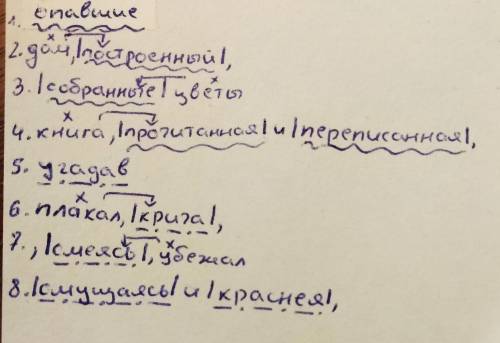 1. опавшие
2. дом, |построенный|,
3. |собранные| цветы
4. книга, |прочитанная| и |переписанная|,
5. угадав
6. плакал, |крича|,
7. , |смеясь|, убежал
8. |смущаясь| и |краснея|,